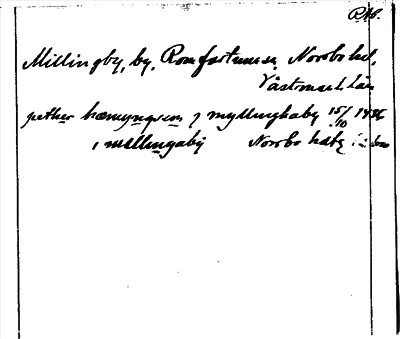 RAB.
Millingby, by, Romfartuna sn. Norrbo hd,
Västmanl. län
pether hæmyngson j myllinghaby 15/10 1436
i mællingaby Norrbo hdby